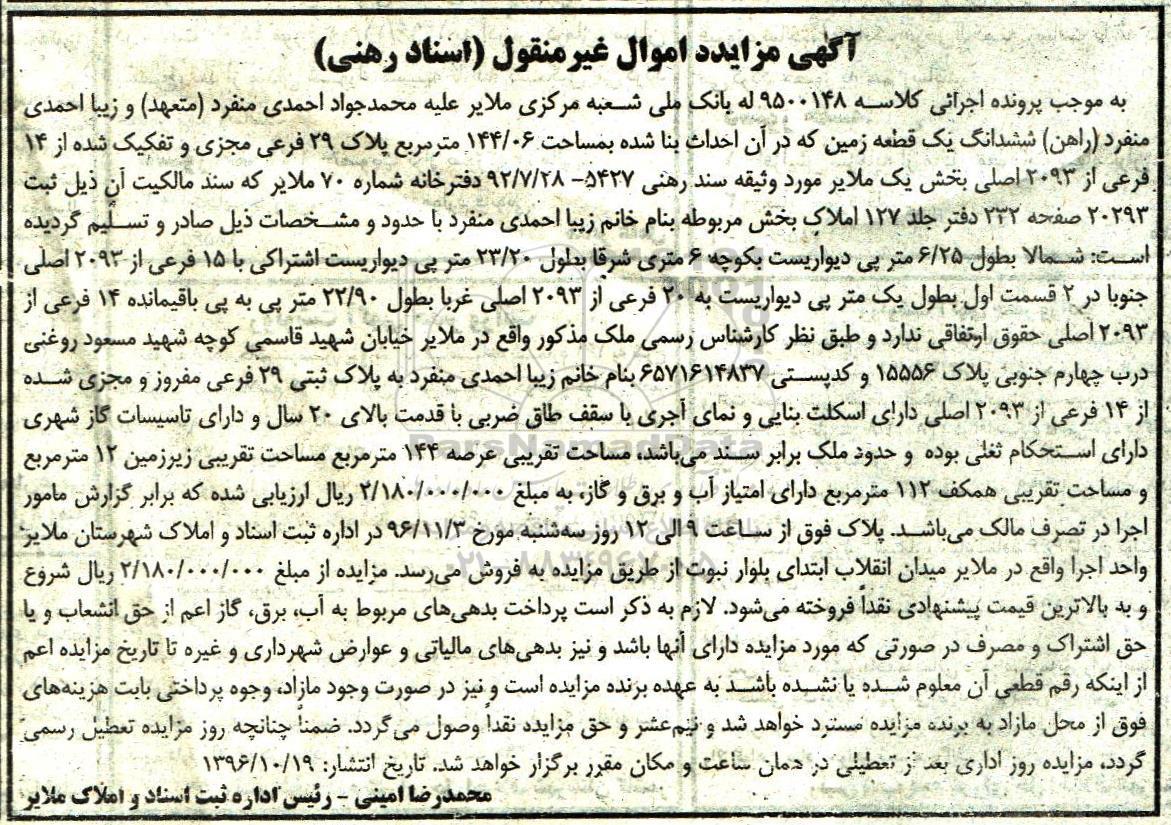 آگهی مزایده اموال غیرمنقول (اسناد رهنی)
به موجب پرونده اجرائی کلاسه ۹۵۰۰۱۴۸ له بانک ملی شعبه مرکزی ملایر علیه محمدجواد احمدی منفرد (متعهد) و زیبا احمدی
منفرد (راهن) ششدانگ یک قطعه زمین که در آن احداث بنا شده بمساحت ۱۴۴/۰۶ مترمربع پلاک ۲۹ فرعی مجزی و تفکیک شده از ۱۴
فرعی از ۲۰۹۳ اصلی بخش یک ملایر مورد وثیقه سند رهنی ۵۴۲۷- ۹۲/۷/۲۸ دفترخانه شماره ۷۰ ملایر که سند مالکیت آن ذیل ثبت
۲۰۲۹۳ صفحه ۲۳۲ دفتر جلد ۱۲۷ املاک بخش مربوطه بنام خانم زیبا احمدی منفرد با حدود و مشخصات ذیل صادر و تسلیم گردیده
است: شمالا بطول ۶/۲۵ متر پی دیواریست بکوچه ۶ متری شرقا بطول ۲۳/۲۰ متر پی دیواریست اشتراکی با ۱۵ فرعی از ۲۰۹۳ اصلی
جنوبا در ۲ قسمت اول بطول یک متر پی دیواریست به ۲۰ فرعی از ۲۰۹۳ اصلی غربا بطول ۲۲/۹۰ متر پی به پی باقیمانده ۱۴ فرعی از
۲۰۹۳ اصلی حقوق ارتفاقی ندارد و طبق نظر کارشناس رسمی ملک مذکور واقع در ملایر خیابان شهید قاسمی کوچه شهید مسعود روغنی
درب چهارم جنوبی پلاک ۱۵۵۵۶ و کدپستی ۶۵۷۱۶۱۴۸۳۷ بنام خانم زیبا احمدی منفرد به پلاک ثبتی ۲۹ فرعی مفروز و مجزی شده
از ۱۴ فرعی از ۲۰۹۳ اصلی دارای اسکلت بنایی و نمای آجری با سقف طاق ضربی با قدمت بالای ۲۰ سال و دارای تاسیسات گاز شهری
دارای استحکام ثغلی بوده و حدود ملک برابر سند می‌باشد، مساحت تقریبی عرصه ۱۴۴ مترمربع مساحت تقریبی زیرزمین ۱۲ مترمربع
و مساحت تقریبی همکف ۱۱۲ مترمربع دارای امتیاز آب و برق و گاز، به مبلغ ۲/۱۸۰/۰۰۰/۰۰۰ ریال ارزیابی شده که برابر گزارش مامور
اجرا در تصرف مالک می‌باشد. پلاک فوق از ساعت ۹ الی ۱۲ روز سه‌شنبه مورخ ۹۶/۱۱/۳ در اداره ثبت اسناد و املاک شهرستان ملایر
واحد اجرا واقع در ملایر میدان انقلاب ابتدای بلوار نبوت از طریق مزایده به فروش می‌رسد. مزایده از مبلغ ۲/۱۸۰/۰۰۰/۰۰۰ ریال شروع
و به بالاترین قیمت پیشنهادی نقداً فروخته می‌شود. لازم به ذکر است پرداخت بدهی‌های مربوط به آب، برق، گاز اعم از حق انشعاب و یا
حق اشتراک و مصرف در صورتی که مورد مزایده دارای آنها باشد و نیز بدهی‌های مالیاتی و عوارض شهرداری و غیره تا تاریخ مزایده اعم
از اینکه رقم قطعی آن معلوم شده یا نشده باشد به عهده برنده مزایده است و نیز در صورت وجود مازاد، وجوه پرداختی بابت هزینه‌های
فوق از محل مازاد به برنده مزایده مسترد خواهد شد و نیم‌عشر و حق مزایده نقداً وصول می‌گردد. ضمناً چنانچه روز مزایده تعطیل رسمی
گردد، مزایده روز اداری بعد از تعطیلی در همان ساعت و مکان مقرر برگزار خواهد شد. تاریخ انتشار: ۱۳۹۶/۱۰/۱۹
محمدرضا امینی - رئیس اداره ثبت اسناد و املاک ملایر
ParsNamadData